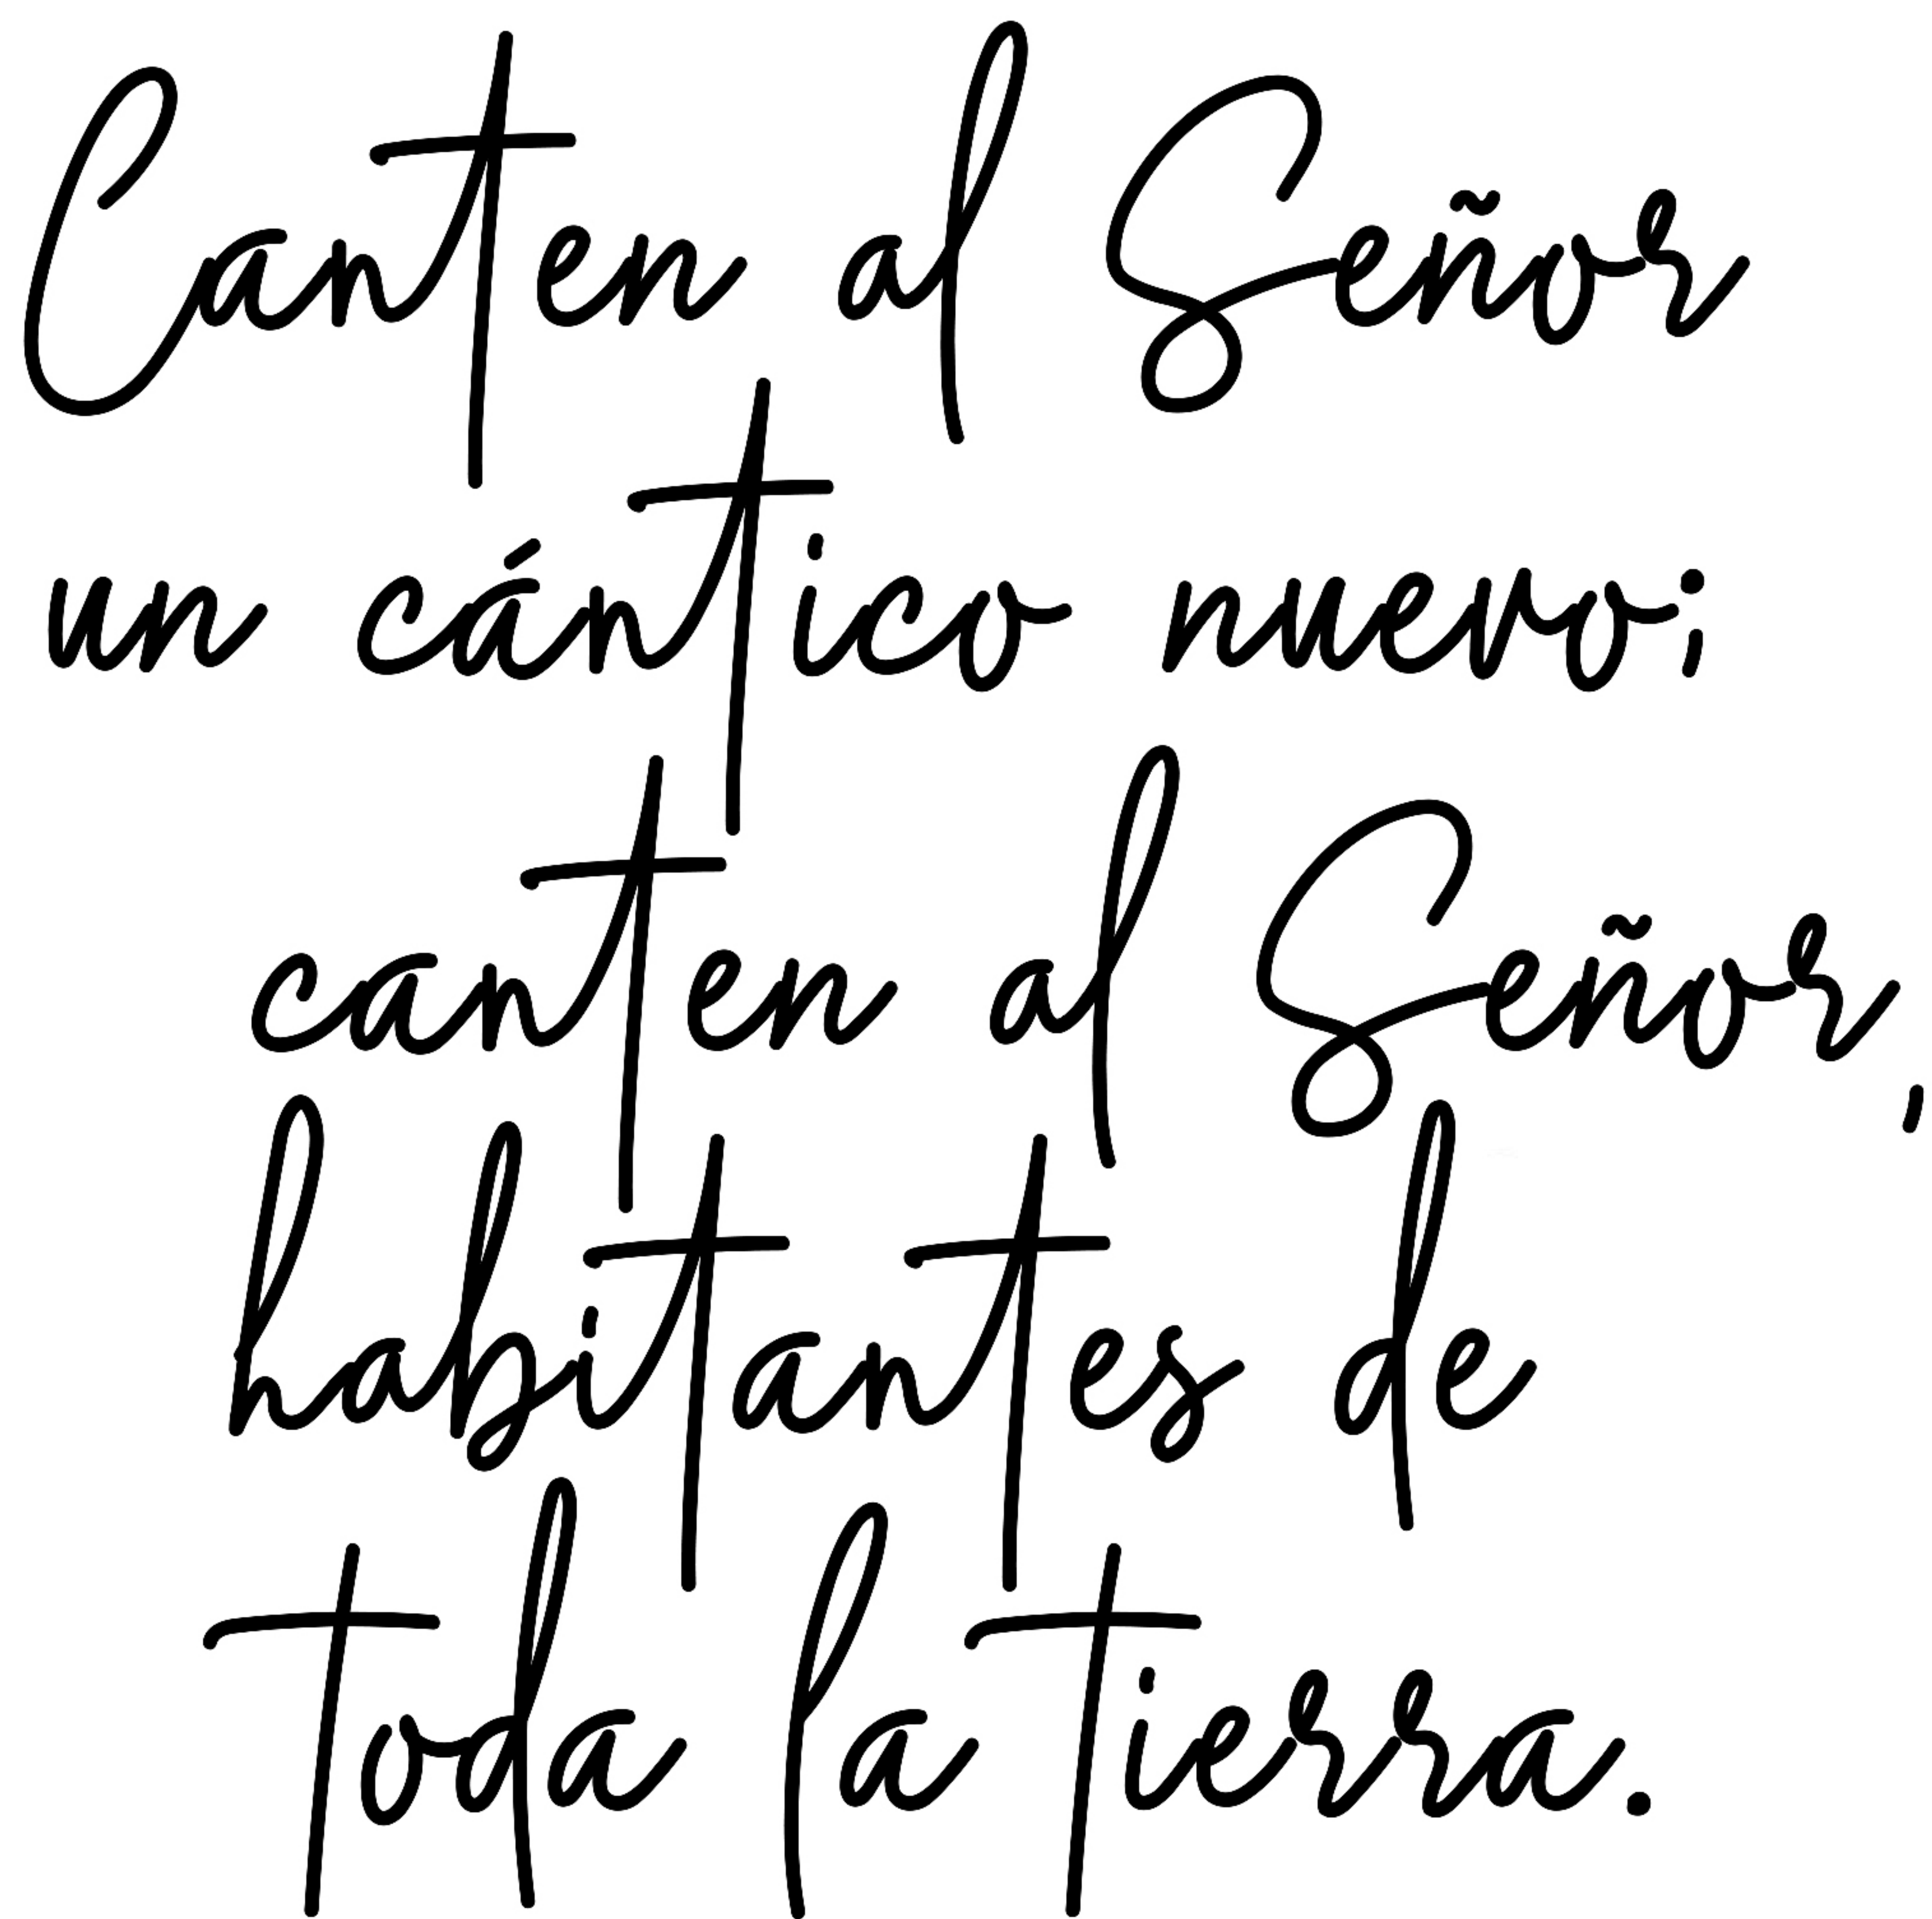 Canten al Señor
un cántico nuevo;
canten al Señor,
habitantes de
toda la tierra.